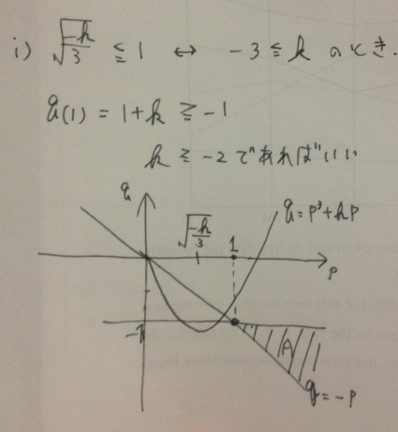 i) √(-k/3) ≦ 1 ↔ -3 ≦ k のとき.
q(1) = 1+k ≧ -1
k ≧ -2 であればいい
q
q=p³+kp
√(-k/3)
1
p
-1
A
q=-p